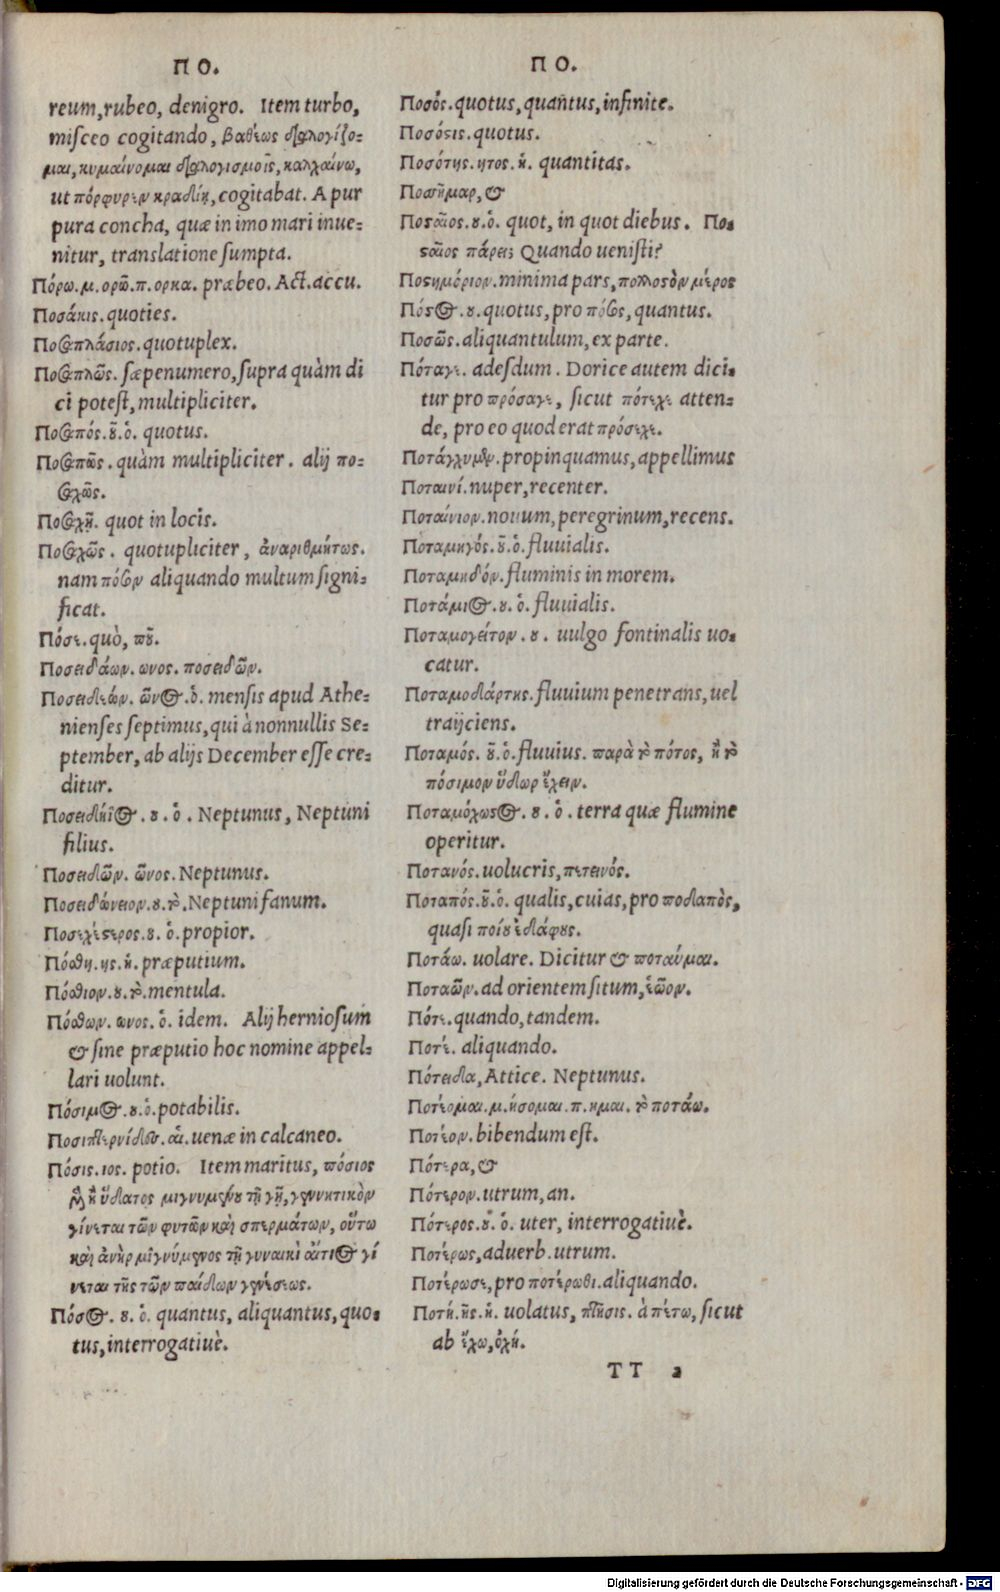 ΠΟ.
reum, rubeo, denigro. Item turbo,
miſceo cogitando, βαθέως διαλογίζο-
μαι, κυμαίνομαι διαλογισμοῖς, καλχαίνω,
ut πόρφυρεν κραδίη, cogitabat. A pur
pura concha, quæ in imo mari inue-
nitur, translatione ſumpta.
Πόρω.μ.ορῶ.π.ορκα. præbeo. Act.accu.
Ποσάκις. quoties.
Ποσαπλάσιος. quotuplex.
Ποσαπλῶς. ſæpenumero, ſupra quàm di
ci poteſt, multipliciter.
Ποσαπός.οῦ.ὁ. quotus.
Ποσαπῶς. quàm multipliciter. alij πο-
σαχῶς.
Ποσαχῇ. quot in locis.
Ποσαχῶς. quotupliciter, ἀναριθμήτως.
nam πόσον aliquando multum ſigni-
ficat.
Πόσε. quò, ποῦ.
Ποσειδάων. ωνος. ποσειδῶν.
Ποσειδεών. ῶνος.ὁ. menſis apud Athe-
nienſes ſeptimus, qui à nonnullis Se-
ptember, ab alijs December eſſe cre-
ditur.
Ποσειδήϊος. ου. ὁ. Neptunus, Neptuni
filius.
Ποσειδῶν. ῶνος. Neptunus.
Ποσειδώνειον.ου.τὸ. Neptuni fanum.
Ποσεχέστερος.ου. ὁ. propior.
Πόσθη.ης.ἡ. præputium.
Πόσθιον.ου.τὸ. mentula.
Πόσθων. ωνος. ὁ. idem. Alij hernioſum
& ſine præputio hoc nomine appel-
lari uolunt.
Πόσιμος.ου.ὁ. potabilis.
Ποσιπτερνίδες. αἱ. uenæ in calcaneo.
Πόσις.ιος. potio. Item maritus, πόσιος
ὕδατος μιγνυμένου τῇ γῇ, γεννητικὸν
γίνεται τῶν φυτῶν καὶ σπερμάτων, οὕτω
καὶ ἀνὴρ μιγνύμενος τῇ γυναικὶ αἴτιος γί
νεται τῆς τῶν παίδων γενέσεως.
Πόσος. ου. ὁ. quantus, aliquantus, quo-
tus, interrogatiuè.
ΠΟ.
Ποσός. quotus, quantus, infinite.
Ποσόσις. quotus.
Ποσότης. ητος. ἡ. quantitas.
Ποσῆμαρ, &
Ποσταῖος.ου.ὁ. quot, in quot diebus. Πο-
σταῖος πάρει; Quando ueniſti?
Ποστημόριον. minima pars, πολλοστὸν μέρος
Πόστος. ου. quotus, pro πόσος, quantus.
Ποσῶς. aliquantulum, ex parte.
Πόταγε. adeſdum. Dorice autem dici-
tur pro πρόσαγε, ſicut πότεχε atten-
de, pro eo quod erat πρόσεχε.
Ποτάγχυμεν. propinquamus, appellimus
Ποταινί. nuper, recenter.
Ποταίνιον. nouum, peregrinum, recens.
Ποταμηγός.οῦ.ὁ. fluuialis.
Ποταμηδόν. fluminis in morem.
Ποτάμιος.ου. ὁ. fluuialis.
Ποταμογείτον. ου. uulgo fontinalis uo-
catur.
Ποταμοδιάρτης. fluuium penetrans, uel
traijciens.
Ποταμός. οῦ.ὁ. fluuius. παρὰ τὸ πότος, ἢ τὸ
πόσιμον ὕδωρ ἔχειν.
Ποταμόχωστος. ου. ὁ. terra quæ flumine
operitur.
Ποτανός. uolucris, πετεινός.
Ποταπός.οῦ.ὁ. qualis, cuias, pro ποδαπὸς,
quaſi ποίου ἐδάφους.
Ποτάω. uolare. Dicitur & ποταῦμαι.
Ποταῶν. ad orientem ſitum, ἑῶον.
Πότε. quando, tandem.
Ποτέ. aliquando.
Πότειδα, Attice. Neptunus.
Ποτέομαι.μ.ήσομαι.π.ημαι. τὸ ποτάω.
Ποτέον. bibendum eſt.
Πότερα, &
Πότερον. utrum, an.
Πότερος.ου. ὁ. uter, interrogatiuè.
Ποτέρως, aduerb. utrum.
Ποτέρωσε, pro ποτέρωθι. aliquando.
Ποτή.ῆς.ἡ. uolatus, πτῆσις. à πέτω, ſicut
ab ἔχω, ὀχή.
TT 2
Digitalisierung gefördert durch die Deutsche Forschungsgemeinschaft - DFG